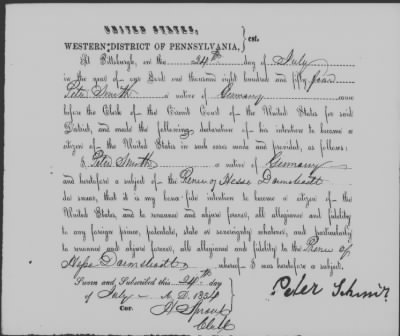 UNITED STATES,
WESTERN DISTRICT OF PENNSYLVANIA, } SS.
At Pittsburgh, on the 24th day of July
in the year of our Lord one thousand eight hundred and fifty four
Peter Smith a native of Germany came
before the Clerk of the Circuit Court of the United States for said
District, and made the following declaration of his intention to become a
citizen of the United States in such cases made and provided, as follows:
I, Peter Smith a native of Germany
and heretofore a subject of the Prince of Hesse Darmstadt
do swear, that it is my bona-fide intention to become a citizen of the
United States, and to renounce and abjure forever, all allegiance and fidelity
to any foreign prince, potentate, state or sovereignty whatever, and particularly
to renounce and abjure forever, all allegiance and fidelity to the Prince of
Hesse Darmstadt whereof I was heretofore a subject.
Sworn and Subscribed this 24th day
of July A. D. 1854
Cor. H Sproul
Clerk
Peter Schmit